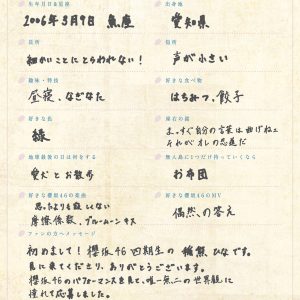 生年月日&星座
2006年3月9日 魚座
出身地
愛知県
長所
細かいことにとらわれない!
短所
声が小さい
趣味・特技
昼寝、なぎなた
好きな食べ物
はちみつ、餃子
好きな色
緑
座右の銘
まっすぐ自分の言葉は曲げねェ
それがオレの忍道だ
地球最後の日は何をする
愛犬とお散歩
無人島に1つだけ持っていくなら
お布団
好きな櫻坂46の楽曲
思ったよりも寂しくない
摩擦係数、ブルームーンキス
好きな櫻坂46のMV
偶然の答え
ファンの方へメッセージ
初めまして!櫻坂46四期生の 稲熊ひなです。
見に来てくださり、ありがとうございます。
櫻坂46のパフォーマンスを見て、唯一無二の世界観に
憧れて応募しました。